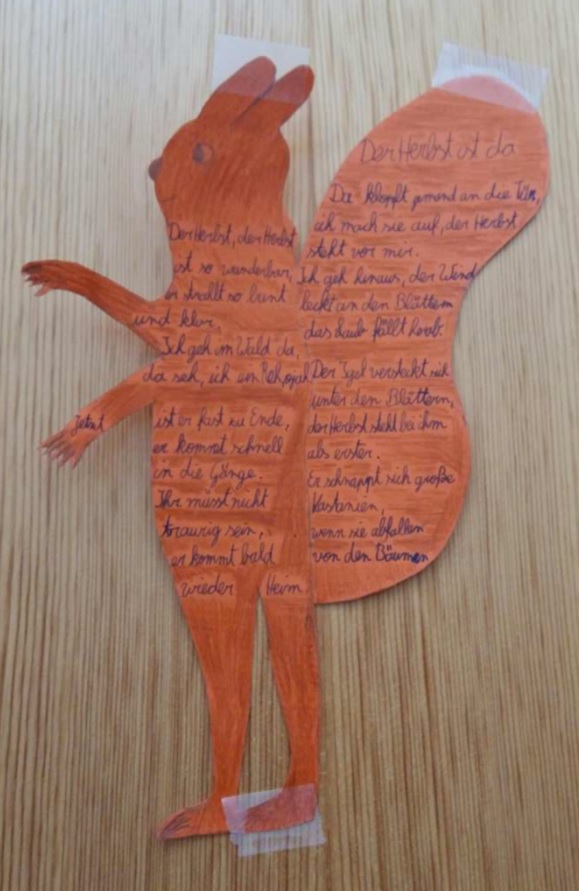 Der Herbst ist da
Da klopft jemand an die Tür,
ich mach sie auf, der Herbst
steht vor mir.
Ich geh hinaus, der Wind
leckt an den Blättern
das Laub fällt herab.
Der Igel versteckt sich
unter den Blättern,
der Herbst steht bei ihm
als erster.
Er schnappt sich große
Kastanien,
wenn sie abfallen
von den Bäumen
Der Herbst, der Herbst
ist so wunderbar,
er strahlt so bunt
und klar.
Ich geh im Wald da,
da seh, ich ein
Jetzt ist er fast zu Ende,
er kommt schnell
in die Gänge.
Ihr müsst nicht
traurig sein,
er kommt bald
wieder Heim.